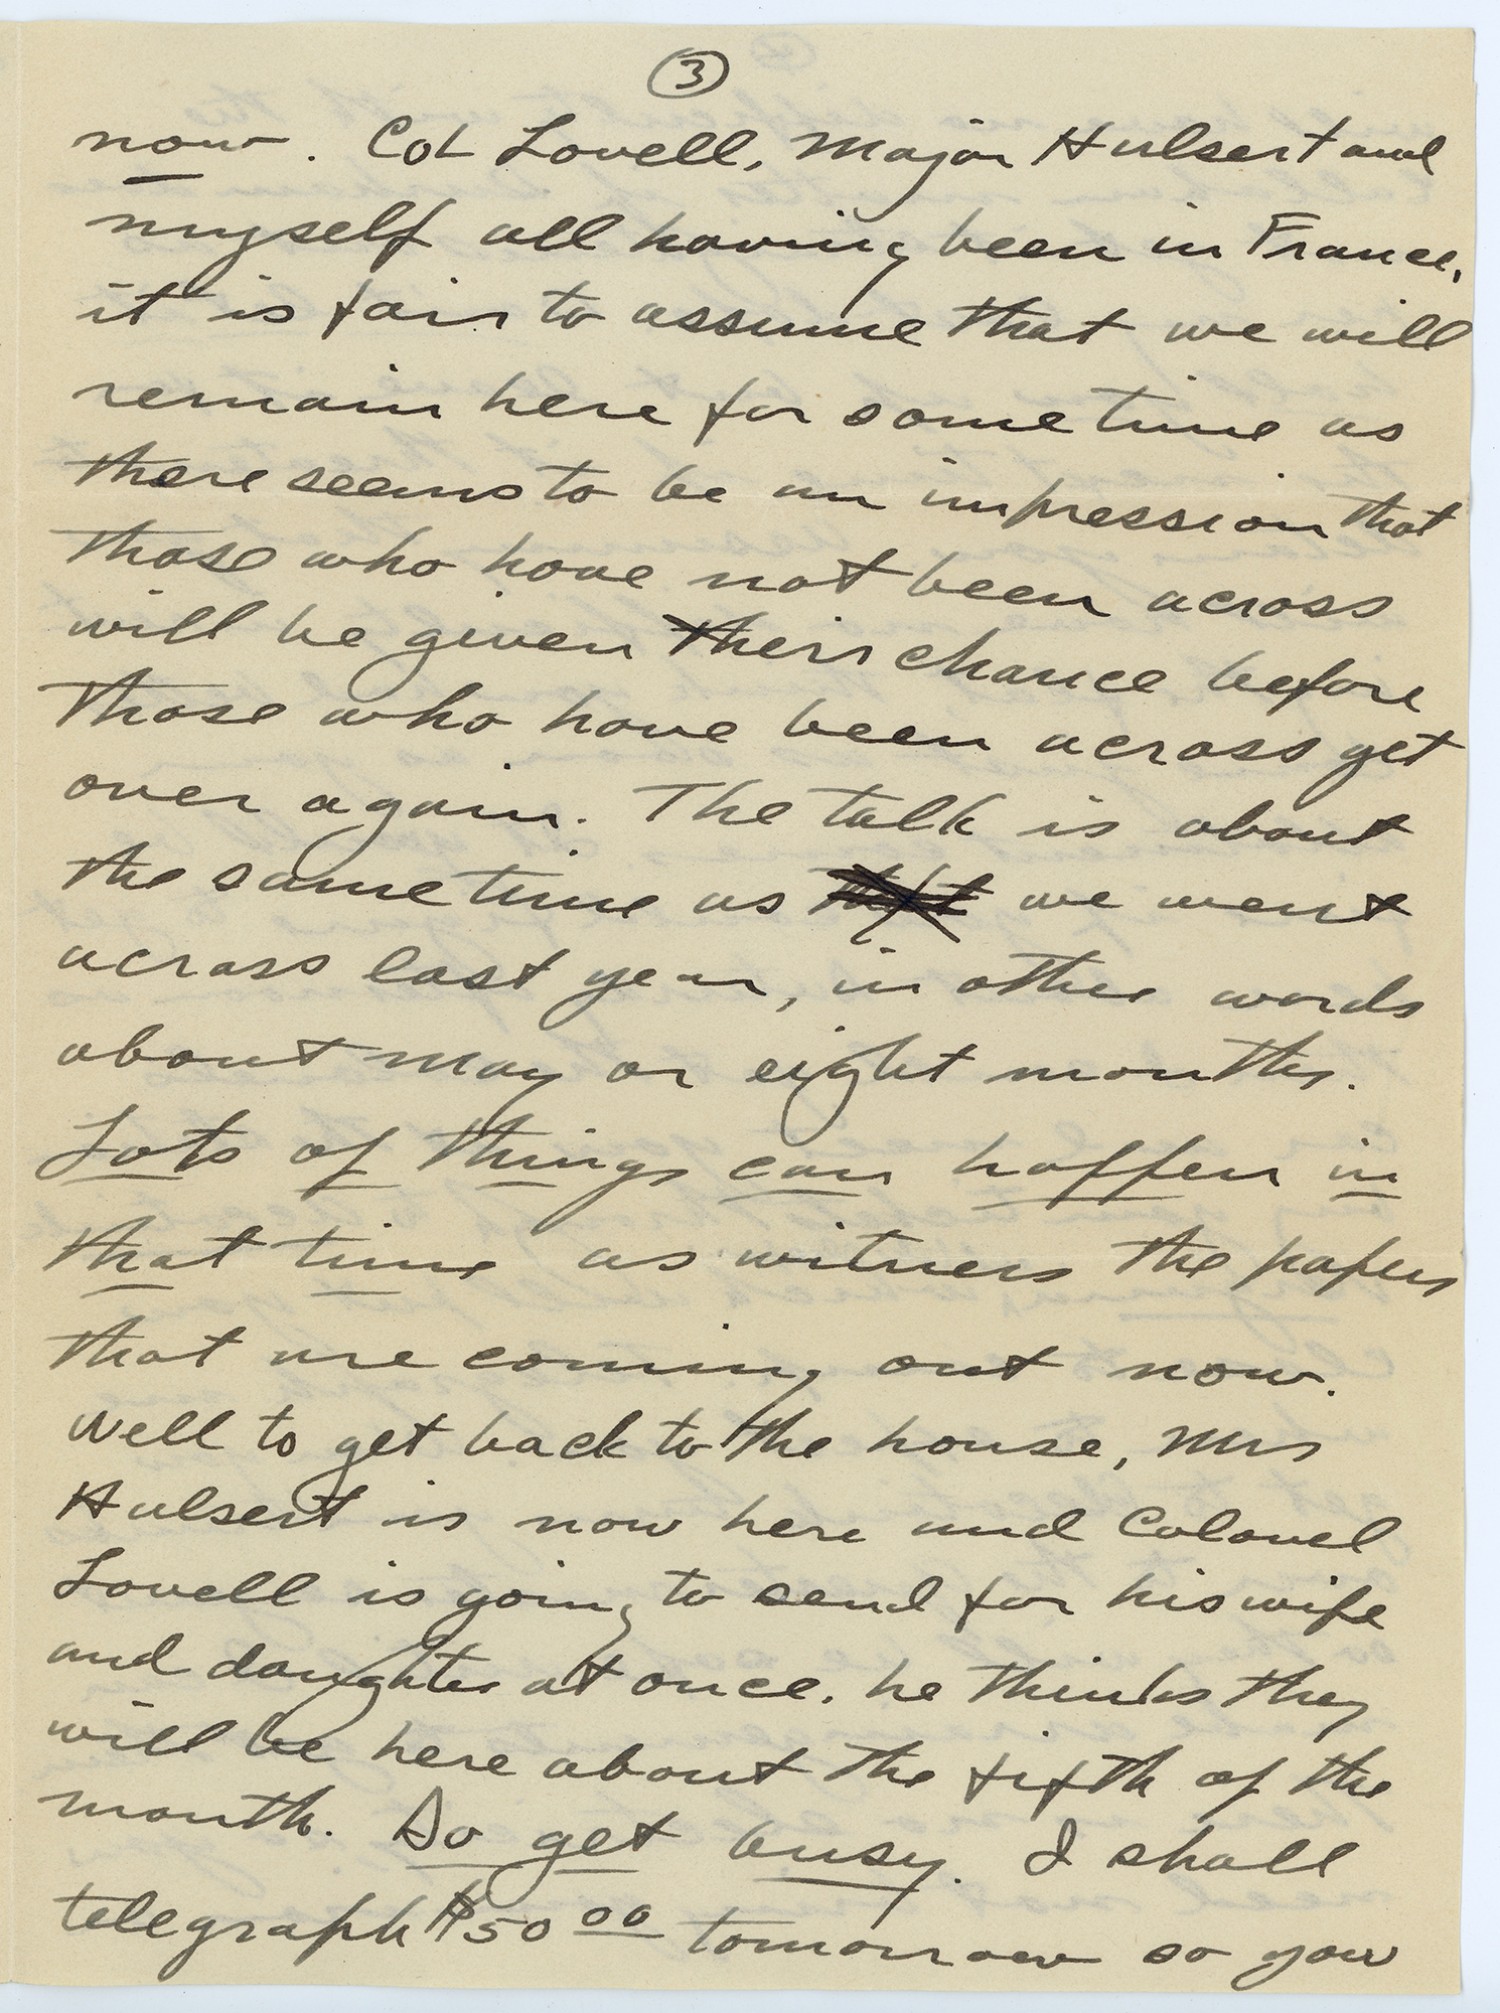 3
now. Col Lovell, Major Hulsert and
myself all having been in France,
it is fair to assume that we will
remain here for some time as
there seems to be an impression that
those who have not been across
will be given their chance before
those who have been across get
over again. The talk is about
the same time as we went
across last year, in other words
about May or eight months.
Lots of things can happen in
that time as witness the papers
that are coming out now.
Well to get back to the house, Mrs
Hulsert is now here and Colonel
Lovell is going to send for his wife
and daughter at once. he thinks they
will be here about the fifth of the
month. So get busy. I shall
telegraph $50 00 tomorrow so you